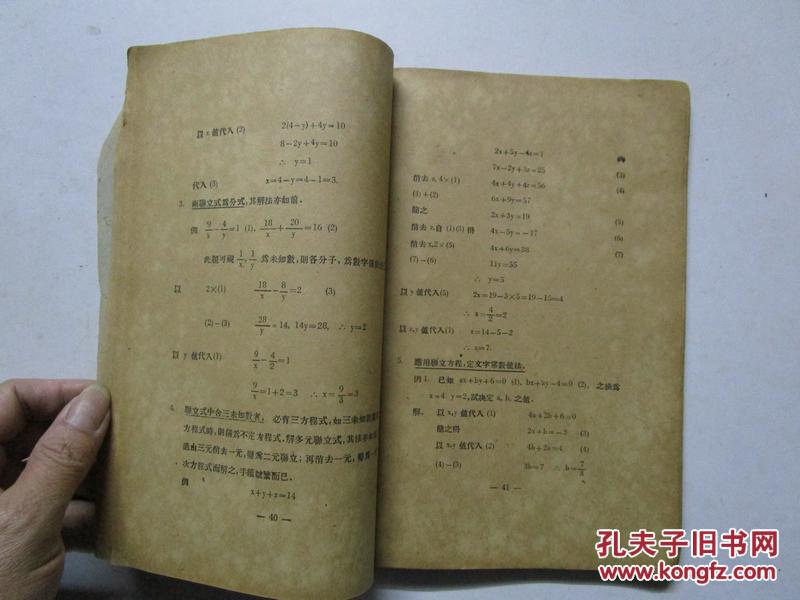 以 x 値代入 (2) 2(4-y)+4y=10
8-2y+4y=10
∴ y=1
代入 (3) x=4-y=4-1=3.
3. 兩聯立式爲分式，其解法亦如前.
例 9/x - 4/y =1 (1), 18/x + 20/y =16 (2)
此題可視 1/x, 1/y 爲未知數，則各分子，爲數字係數
以 2×(1) 18/x - 8/y =2 (3)
(2)-(3) 28/y =14, 14y=28, ∴ y=2
以 y 値代入(1) 9/x - 4/2 =1
9/x =1+2=3 ∴ x= 9/3 =3
4. 聯立式中含三未知數者. 必有三方程式，如三未知數
方程式時，則稱爲不定方程式，解多元聯立式，其法亦
過由三元消去一元，變爲二元聯立；再消去一元，變爲一
次方程式而解之，手續較繁而已.
例
x+y+z=14
— 40 —
2x+5y-4z=1
7x-2y+3z=25 (3)
消去 z, 4×(1) 4x+4y+4z=56 (4)
(4)+(2) 6x+9y=57
簡之 2x+3y=19 (5)
消去 z, 自 (1)(3) 得 4x-5y=-17 (6)
消去 x, 2×(5) 4x+6y=38 (7)
(7)-(6) 11y=55
∴ y=5
以 y 値代入(5) 2x=19-3×5=19-15=4
∴ x= 4/2 =2
以 x,y 値代入(1) z=14-5-2
∴ z=7.
5. 應用聯立方程，定文字常數値法.
例 1. 已知 ax+by+6=0 (1), bx+ay-4=0 (2), 之根爲
x=4 y=2, 試决定 a, b, 之値.
解. 以 x,y 値代入 (1) 4a+2b+6=0
簡之得 2a+b=-3 (3)
以 x,y 値代入 (2) 4b+2a=4 (4)
(4)-(3) 3b=7 ∴ b= 7/3
— 41 —
孔夫子旧书网
www.kongfz.com